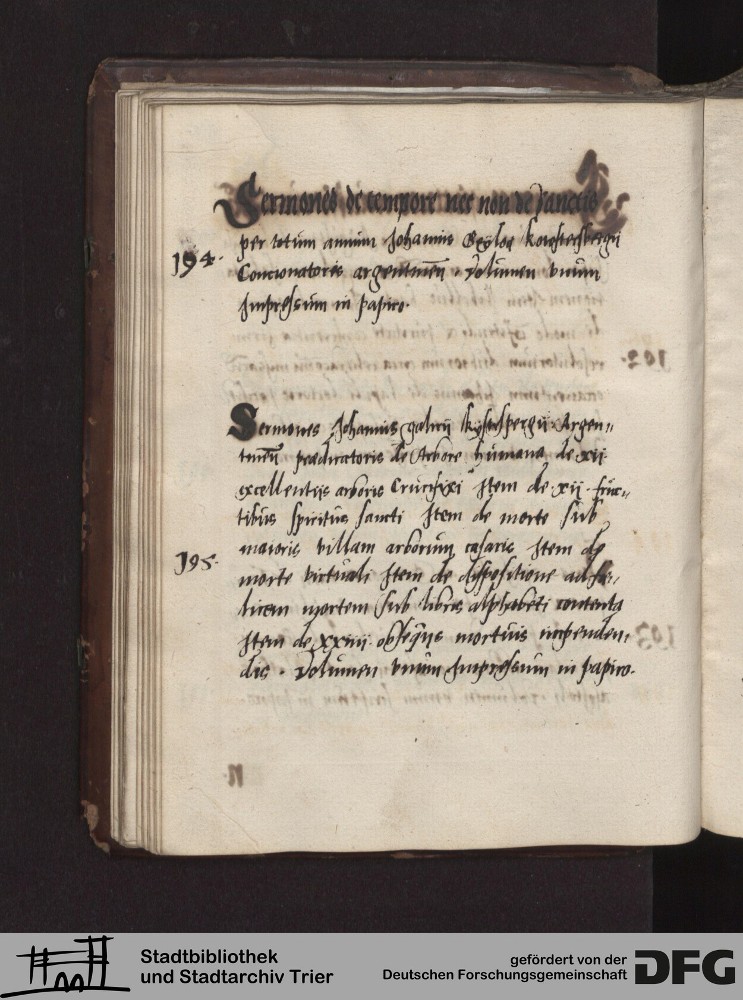 Sermones de tempore nec non de sanctis
194.
per totum annum Johannis
Concionatoris argentineñ. Volumen vnum
Impressum in papiro.
Sermones Johannis galerij kyserspergij Argen„
tineñ praedicatoris de Arbore humana de xij
excellentijs arboris Crucifixi Item de xij fruc„
tibus spiritus sancti Item de morte sub
195.
maioris villam arborum cesaris Item de
morte virtuali Item de dispositione ad fæ„
licem mortem sub libris alphabeti contenta
Item de xxiiij obsequijs mortuis impenden„
dis. Volumen vnum Impressum in papiro.
Stadtbibliothek
und Stadtarchiv Trier
gefördert von der
Deutschen Forschungsgemeinschaft
DFG